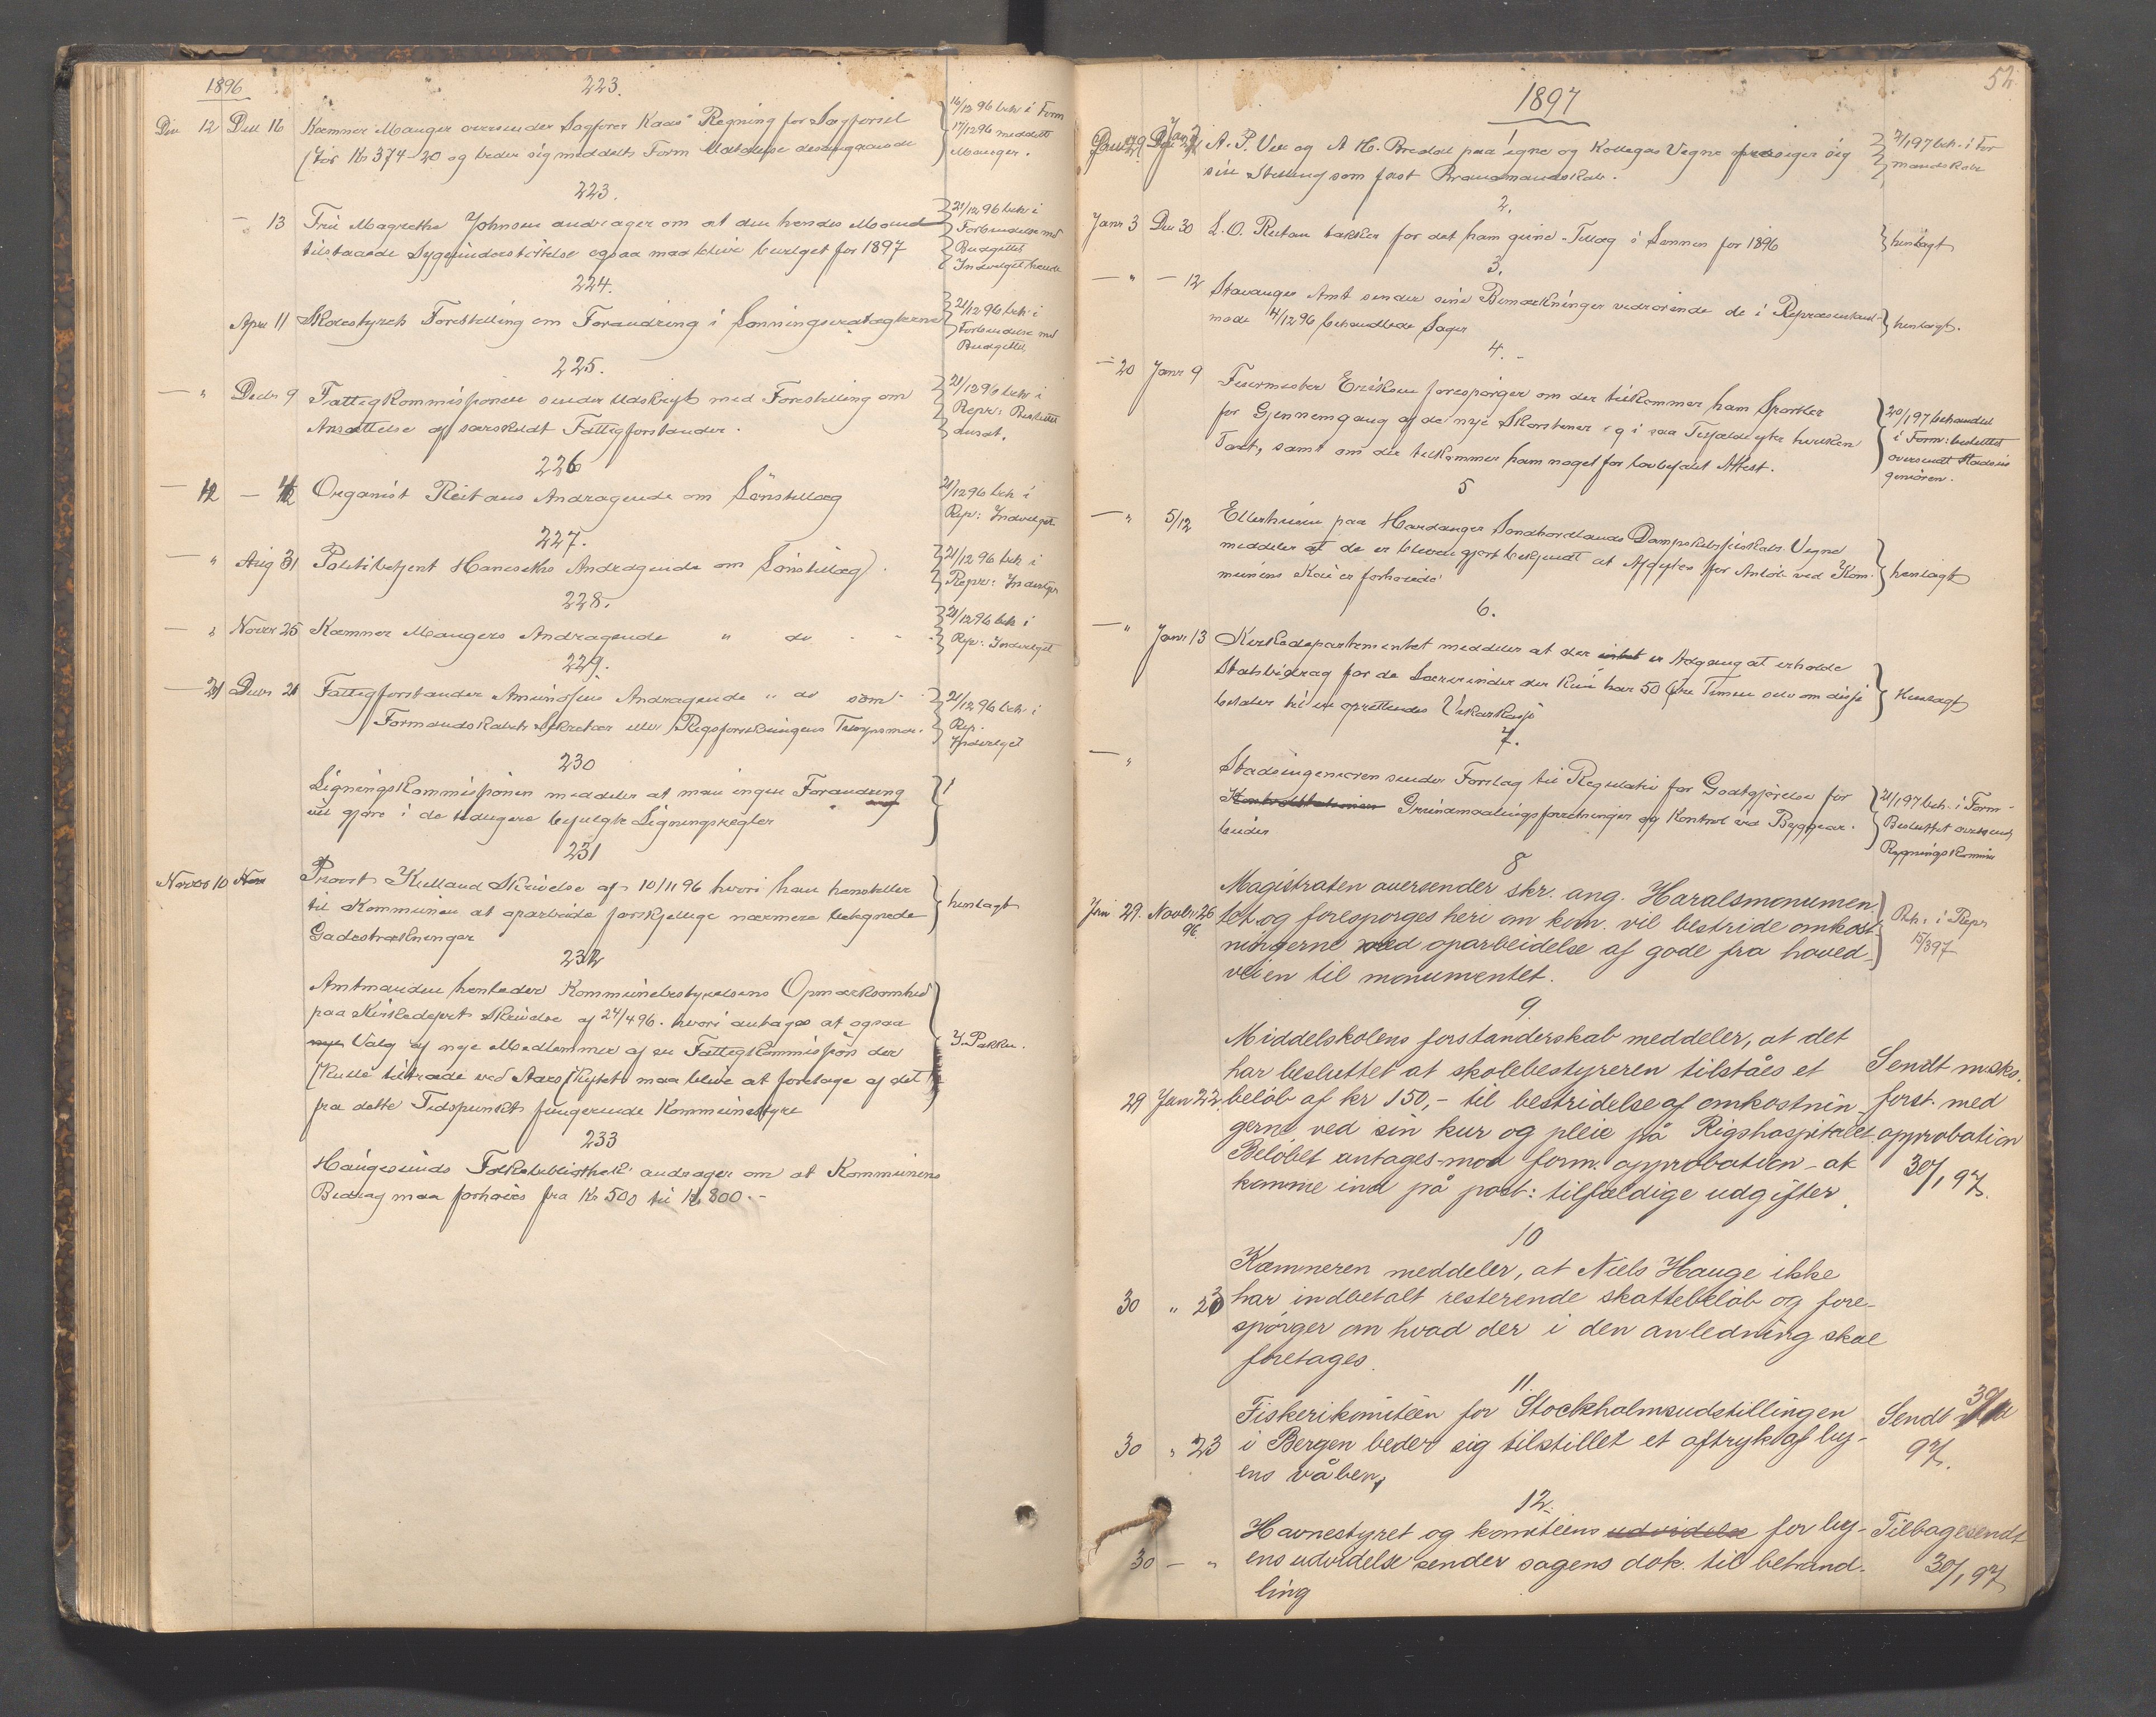 1896
223.
Dec 12 Dec 16 Kæmner Mauger oversender Sagfører Kaas' Regning for Sagførsel 16/12 96 beh i Form
for Kr 374-20 og beder sig meddelt Form Udtalelse desangaaende 17/12 96 meddelt
Mauger.
223.
— 13 Fru Magrethe Johnsen andrager om at den hendes Mand 21/12 96 beh i
tilstaaede Sygeunderstøttelse ogsaa maa blive bevilget for 1897 Forbindelse md
Budgettet
Indvilget
224.
Apr 11 Skolestyrets Forestilling om Forandring i Lønningsvedtægterne 21/12 96 beh i
Forbindelse md
Budgettet
225.
— " Decbr 9 Fattigkommissionen sender Udskrift med Forestilling om 21/12 96 beh i
Ansættelse af særskildt Fattigforstander. Repr: Besluttet
ansat.
226
— 12 — 12 Organist Reitans Andragende om Lønstillæg 21/12 96 beh i
Rep: Indvilget
227.
— " Aug 31 Politibetjent Andragende om Lønstillæg. 21/12 96 beh i
Repr: Indvilget
228.
— " Novbr 25 Kæmner Maugers Andragende " do - - - 21/12 96 beh i
Rep: Indvilget
229.
— 21 Decbr 21 Fattigforstander Amundsens Andragende " do som 21/12 96 beh i
Formandskabets Sekretær eller Rigsforsikringens Tilsynsmand. Rep.
Indvilget
230
Ligningskommissionen meddeler at man ingen Forandring
vil gjøre i de tidligere befulgte Ligningsregler
231
Novbr 10 Nov Provst Kielland Skrivelse af 10/11 96 hvori han henstiller
til Kommunen at oparbeide forskjellige nærmere betegnede henlagt
Gadestrækninger
232
Amtmanden henleder Kommunebestyrelsens Opmærksomhed
paa Kirkedepart. Skrivelse af 24/4 96. hvori antages at ogsaa
nye Valg af nye Medlemmer af en Fattigkommission der Y. Pakken.
skulle tiltræde ved Aarsskiftet maa blive at foretage af det
fra dette Tidspunkt fungerende Kommunestyre
233
Haugesunds Folkebibliothek andrager om at Kommunens
Bidrag maa forhøies fra Kr 500 til Kr 800.-
52
1897
1
A. P. Vee og A H. Bredal paa egne og Kollegas Vegne frasiger sig 2/1 97 beh. i For
sin Stilling som fast Brandmandskab. mandskabe
2.
Janr 3 Dec 30 L. O. Reitan takker for det ham givne Tillæg i Lønnen for 1896 henlagt
3.
— " — 12 Stavanger Amt sender sine Bemærkninger vedrørende de i Repræsentant-
møde 4/12 96 behandlede Sager henlagt.
4.
— 20 Janr 9 Feiermester Eriksen forespørger om der tilkommer ham Sportler 20/1 97 behandlet
for Gjennemgang af de nye Skorstener og i saa Tilfælde efter hvilken i Form: besluttet
Taxt, samt om der tilkommer ham noget for lovbefalet Attest. oversendt Stadsin
geniøren.
5
— " 5/12 Ellerhusen paa Hardanger Søndhordlands Dampskibsselskabs Vegne
meddeler at de er bleven gjort bekjendt at Afgiften for Anløb ved Kom- henlagt
munens Kai er forhøiede
6.
— " Janr 13 Kirkedepartementet meddeler at der intet er Adgang at erholde
Statsbidrag for de Lærerinder der kun har 50 Øre Timen selv om disse Henlagt
betaler til en oprettendes Vikarkasse
7.
— " Stadsingeniøren sender Forslag til Regulativ for Godtgjørelse for 21/1 97 beh. i Form-
Grundmaalingsforretninger og Kontrol ved Byggear- Besluttet oversendt
beider Bygningskommis
8
Magistraten oversender skr. ang. Haralsmonumen
Jan 29. Novbr 26 96. tet og foresporges heri om kom. vil bestride omkost- Beh: i Repr
ningerne ved oparbeidelse af gade fra hoved- 15/3 97
veien til monumentet.
9.
Middelskolens forstanderskab meddeler, at det
har besluttet at skolebestyreren tilståes et Sendt m.sko.
29 Jan 22. beløb af kr 150,- til bestridelse af omkostnin- forst. med
gerne ved sin kur og pleie på Rigshospitalet. approbation
Beløbet antages - mod form. approbation - at 30/1 97.
komme ind på post: tilfældige udgifter.
10
Kæmneren meddeler, at Niels Hauge ikke
30 " 23 har indbetalt resterende skattebeløb og fore-
spørger om hvad der i den anledning skal
foretages.
11.
Fiskerikomiteen for Stockholmsudstillingen Sendt 30/1
30 " 23 i Bergen beder sig tilstillet et aftryk af by- 97.
ens våben,
12.
Havnestyret og komiteens udvidelse for by- Tilbagesendt
30 — " ens udvidelse sender sagens dok. til behand- 30/1 97
ling